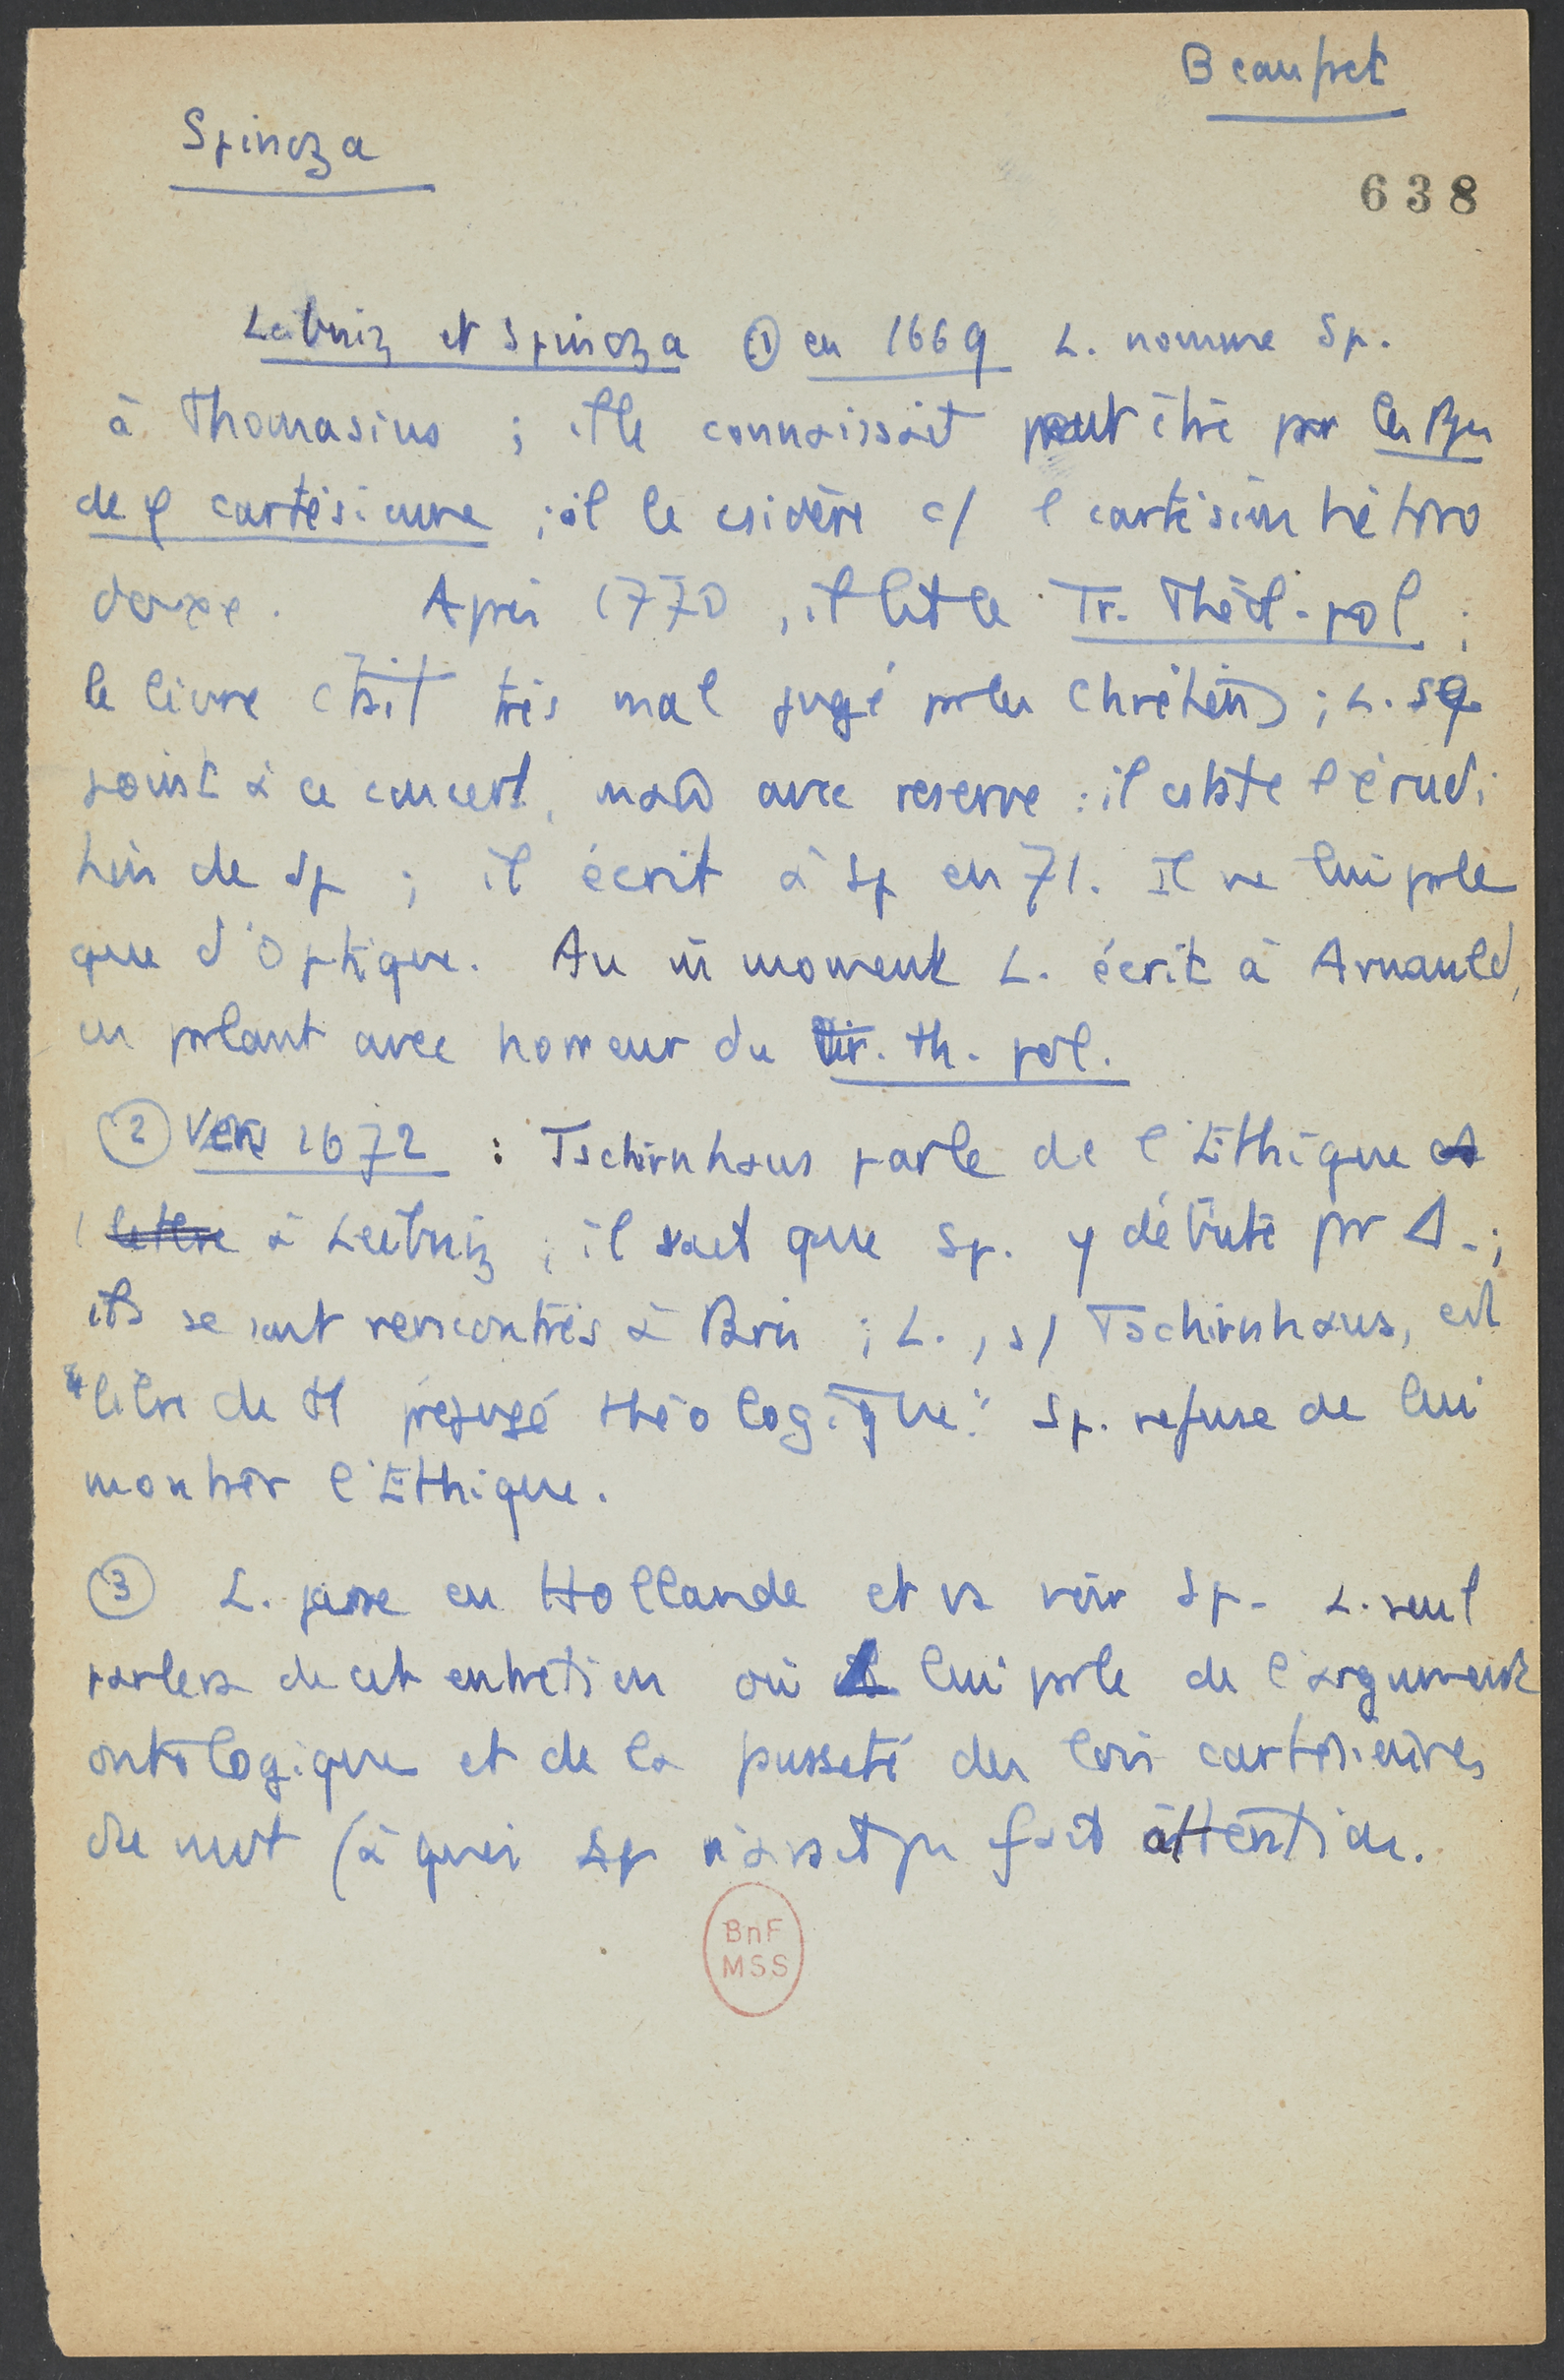 Beaufret
Spinoza
638
Leibniz et Spinoza ① en 1669 L. nomme Sp.
à Thomasius ; il le connaissait peut être par les Ppes
de φ cartésienne ; il le csidère c/ 1 cartésien hétéro
doxe. Après 1770, il lit le Tr. Théol-pol ;
le livre était très mal jugé par les Chrétiens ; L. se
joint à ce concert, mais avec reserve : il cstate l'érudi
tion de Sp ; il écrit à Sp en 71. Il ne lui parle
que d'optique. Au m̄ moment L. écrit à Arnauld,
en parlant avec horreur du Tr. th. pol.
② Vers 1672 : Tschirnhaus parle de l'Ethique
lettre à Leibniz ; il sait que Sp. y débute par Δ. ;
ils se sont rencontrés à Paris ; L., s/ Tschirnhaus, est
"libre de tt préjugé théologique". Sp. refuse de lui
montrer l'Ethique.
③ L. passe en Hollande et va voir Sp. L. seul
parlera de cet entretien où il lui parle de l'argument
ontologique et de la fausseté des lois cartésiennes
du mvt (à quoi Sp n'avait pas fait attention.
BnF
MSS